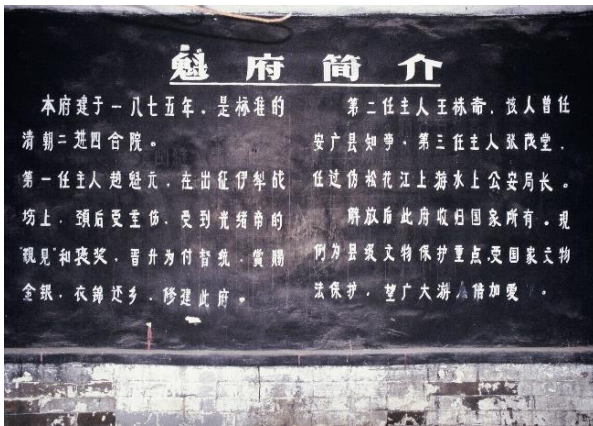 魁府简介
本府建于一八七五年，是标准的
清朝二进四合院。
第一任主人赵魁元，在出征伊犁战
场上，颈后受重伤，受到光绪帝的
“觐见”和褒奖，晋升为付督统，赏赐
金银，衣锦还乡，修建此府。
第二任主人王栋斋，该人曾任
安广县知事，第三任主人张茂堂，
任过伪松花江上游水上公安局长。
解放后此府收归国家所有。现
例为县级文物保护重点，受国家文物
法保护，望广大游人倍加爱。